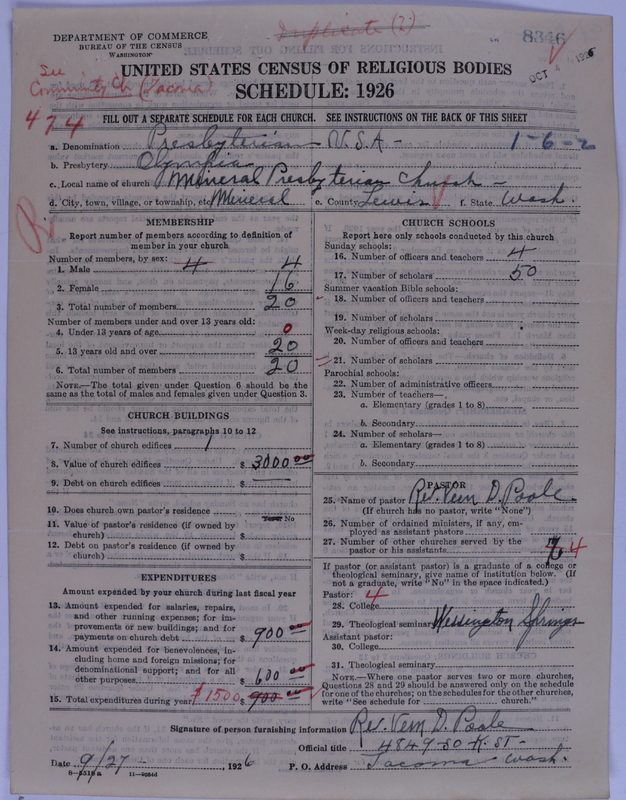 Duplicate (?)
DEPARTMENT OF COMMERCE
BUREAU OF THE CENSUS
WASHINGTON
8346
OCT 4 1926
See
Community Ch (Tacoma)
474
UNITED STATES CENSUS OF RELIGIOUS BODIES
SCHEDULE: 1926
FILL OUT A SEPARATE SCHEDULE FOR EACH CHURCH. SEE INSTRUCTIONS ON THE BACK OF THIS SHEET
a. Denomination Presbyterian U.S.A - 1-6-2
b. Presbytery Olympia
c. Local name of church Mineral Presbyterian Church -
d. City, town, village, or township, etc. Mineral e. County Lewis f. State Wash.
MEMBERSHIP
Report number of members according to definition of
member in your church
Number of members, by sex:
1. Male 4 4
2. Female 16
3. Total number of members 20
Number of members under and over 13 years old:
4. Under 13 years of age 0
5. 13 years old and over 20
6. Total number of members 20
NOTE.—The total given under Question 6 should be the
same as the total of males and females given under Question 3.
CHURCH BUILDINGS
See instructions, paragraphs 10 to 12
7. Number of church edifices 1
8. Value of church edifices $ 3000.00
9. Debt on church edifices $
10. Does church own pastor's residence Yes or No
11. Value of pastor's residence (if owned by
church) $
12. Debt on pastor's residence (if owned by
church) $
EXPENDITURES
Amount expended by your church during last fiscal year
13. Amount expended for salaries, repairs,
and other running expenses; for im-
provements or new buildings; and for
payments on church debt $ 900.00
14. Amount expended for benevolences, in-
cluding home and foreign missions; for
denominational support; and for all
other purposes $ 600.00
15. Total expenditures during year $1500 900.00
CHURCH SCHOOLS
Report here only schools conducted by this church
Sunday schools:
16. Number of officers and teachers 4
17. Number of scholars 50
Summer vacation Bible schools:
18. Number of officers and teachers
19. Number of scholars
Week-day religious schools:
20. Number of officers and teachers
21. Number of scholars
Parochial schools:
22. Number of administrative officers
23. Number of teachers—
a. Elementary (grades 1 to 8)
b. Secondary
24. Number of scholars—
a. Elementary (grades 1 to 8)
b. Secondary
PASTOR
25. Name of pastor Rev. Vern D. Poole
(If church has no pastor, write "None")
26. Number of ordained ministers, if any, em-
ployed as assistant pastors
27. Number of other churches served by the
pastor or his assistants 4
If pastor (or assistant pastor) is a graduate of a college or
theological seminary, give name of institution below. (If
not a graduate, write "No" in the space indicated.)
Pastor: 4
28. College
29. Theological seminary Wessington Springs
Assistant pastor:
30. College
31. Theological seminary
NOTE.—Where one pastor serves two or more churches,
Questions 28 and 29 should be answered only on the schedule
for one of the churches; on the schedules for the other churches,
write "See schedule for church."
Signature of person furnishing information Rev. Vern D. Poole
Official title 4849-So K. ST-
Date 9/27 -, 1926 P. O. Address Tacoma Wash.